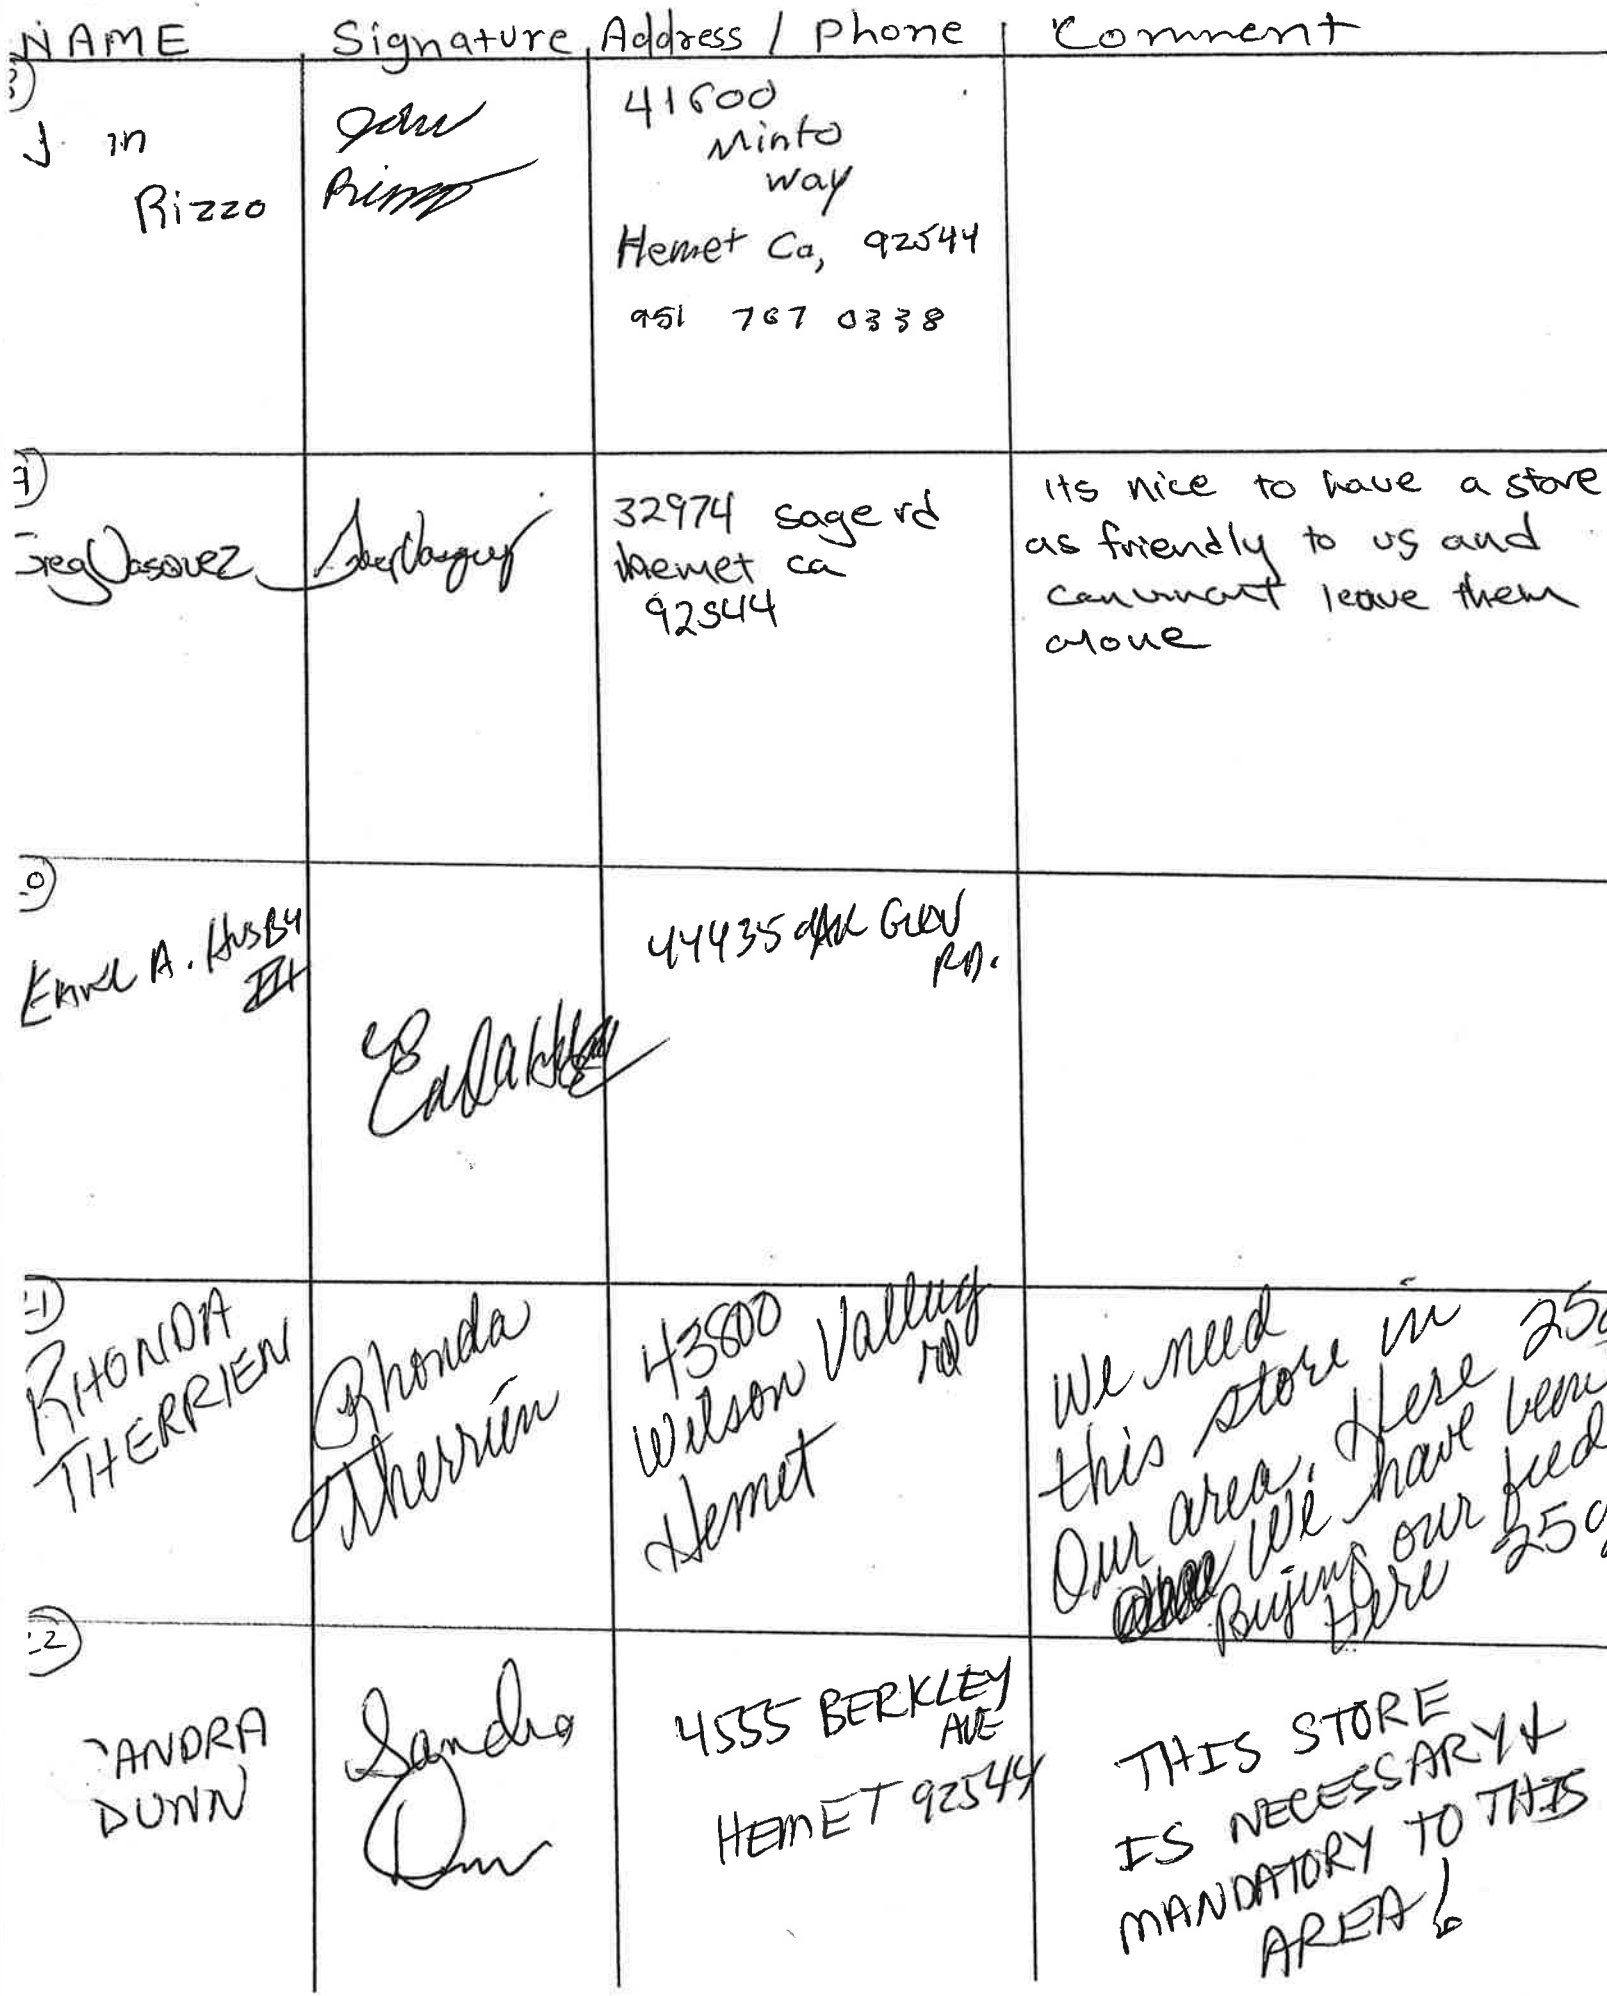 NAME Signature Address / Phone Comment
J in
Rizzo
John
Rizzo
41600
Minto
Way
Hemet Ca, 92544
951 767 0338
Greg Vasquez
Greg Vasquez
32974 sage rd
hemet ca
92544
its nice to have a store
as friendly to us and
leave them
alone
0)
A. HUSBY
III
44435 OAK GLEN
RD.
1)
RHONDA
THERRIEN
Rhonda
Therrien
43800
Wilson Valley
rd
Hemet
We need
this store in
Our area. Here 25
We have been
Buying our feed
Here 25
2)
ANDRA
DUNN
Sandra
Dunn
4555 BERKLEY
AVE
HEMET 92544
THIS STORE
IS NECESSARY +
MANDATORY TO THIS
AREA!